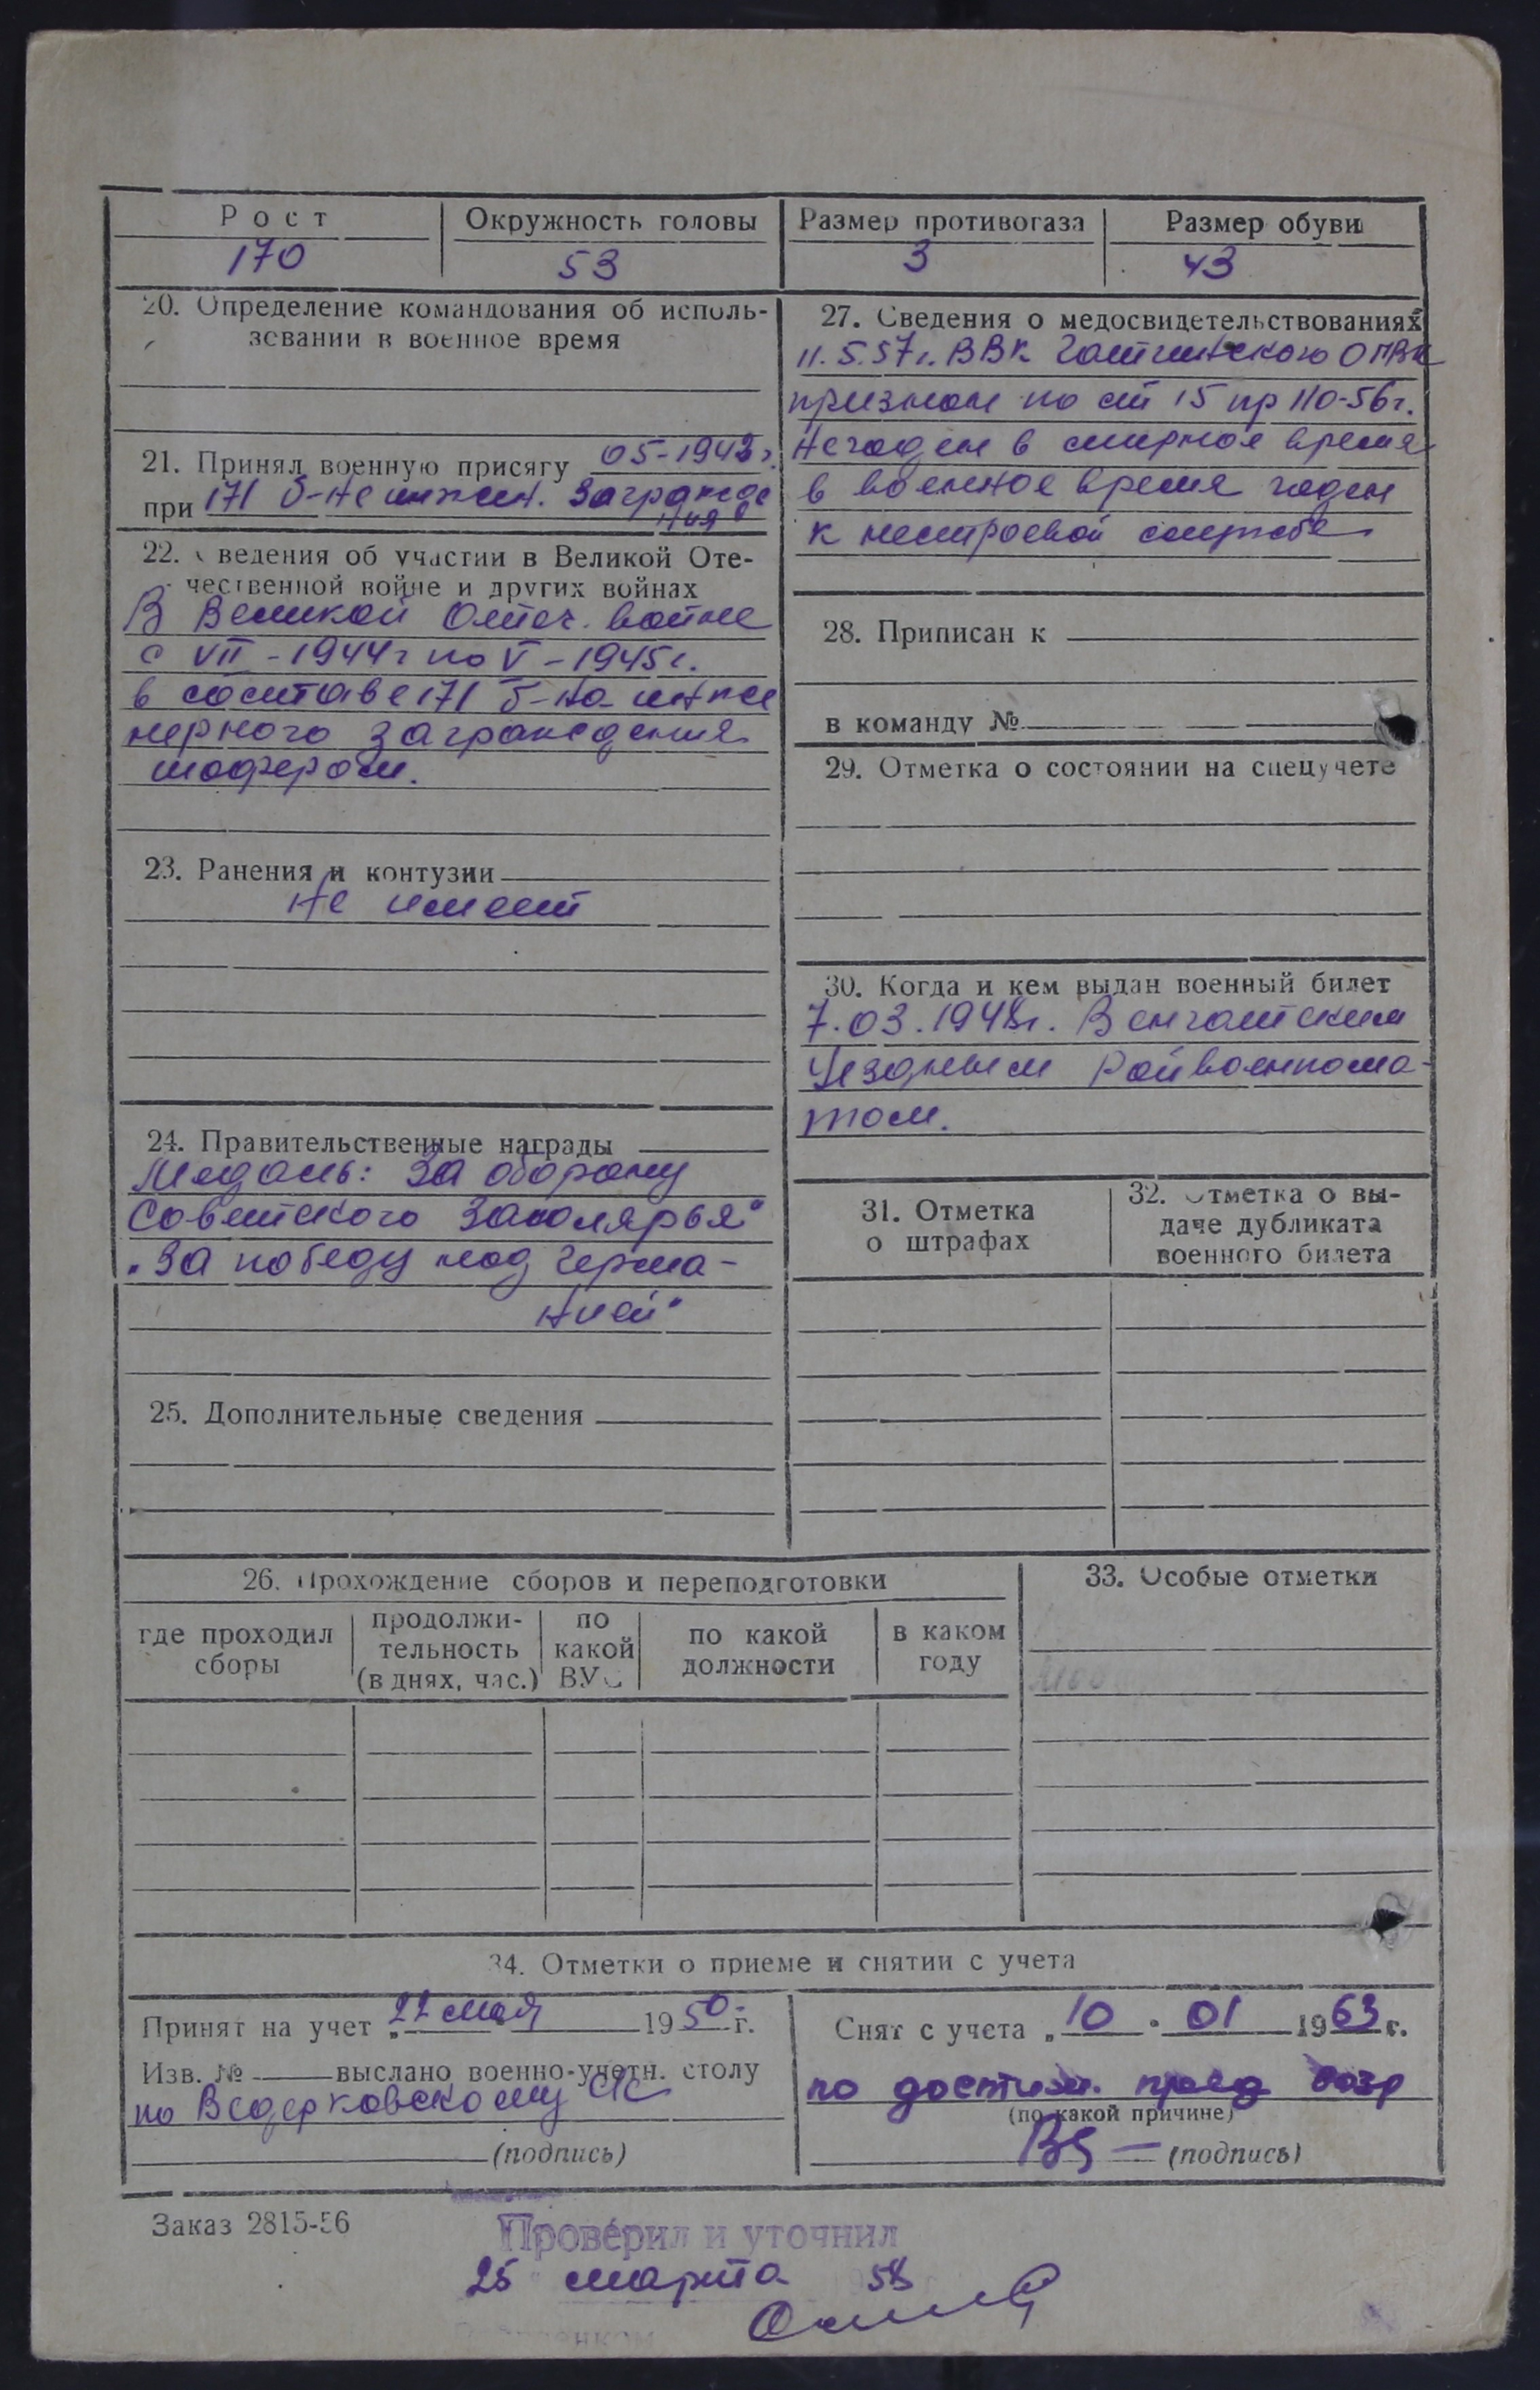 Рост
170
Окружность головы
53
Размер противогаза
3
Размер обуви
43
20. Определение командования об исполь-
зовании в военное время
21. Принял военную присягу 05-1942г.
при 171 б-не инжен. загражде
ния
22. Сведения об участии в Великой Оте-
чественной войне и других войнах
В Великой Отеч. войне
с VII-1944г по V-1945г.
в составе 171 б-на инже
нерного заграждения
шофером.
23. Ранения и контузии
Не имеет
24. Правительственные награды
Медаль: За оборону
Советского Заполярья"
"За победу над Герма-
нией"
25. Дополнительные сведения
27. Сведения о медосвидетельствованиях
11.5.57г. ВВК Гатчинского ОГВК
признан по ст 15 пр 110-56г.
Негоден в мирное время
в военное время годен
к нестроевой службе
28. Приписан к
в команду №
29. Отметка о состоянии на спецучете
30. Когда и кем выдан военный билет
7.03.1948г.
Уездным Райвоенкома-
том.
31. Отметка
о штрафах
32. Отметка о вы-
даче дубликата
военного билета
26. Прохождение сборов и переподготовки
где проходил
сборы
продолжи-
тельность
(в днях, час.)
по
какой
ВУС
по какой
должности
в каком
году
33. Особые отметки
34. Отметки о приеме и снятии с учета
Принят на учет „22 мая 1950 г.
Изв. № выслано военно-учетн. столу
по Ведерковскому с/с
(подпись)
Снят с учета „10 " 01 1963 г.
по достиж. пред возр
(по какой причине)
(подпись)
Заказ 2815-56
Проверил и уточнил
25 марта 58